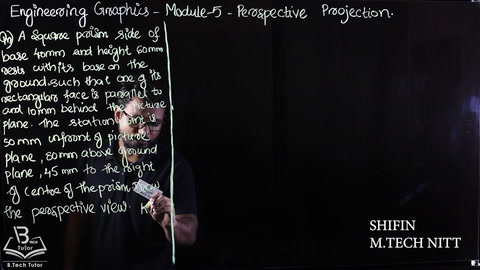 Engineering Graphics - Module-5 - Perspective Projection.
Qn) A Square prism side of
base 40mm and height 60mm
rests with its base on the
ground such that one of its
rectangular face is parallel to
and 10mm behind the picture
plane. The station point is
50mm infront of picture
plane, 80mm above ground
plane, 45mm to the right
of centre of the prism. Draw
the perspective view.
SHIFIN
M.TECH NITT
B
TECH
Tutor
B.Tech Tutor